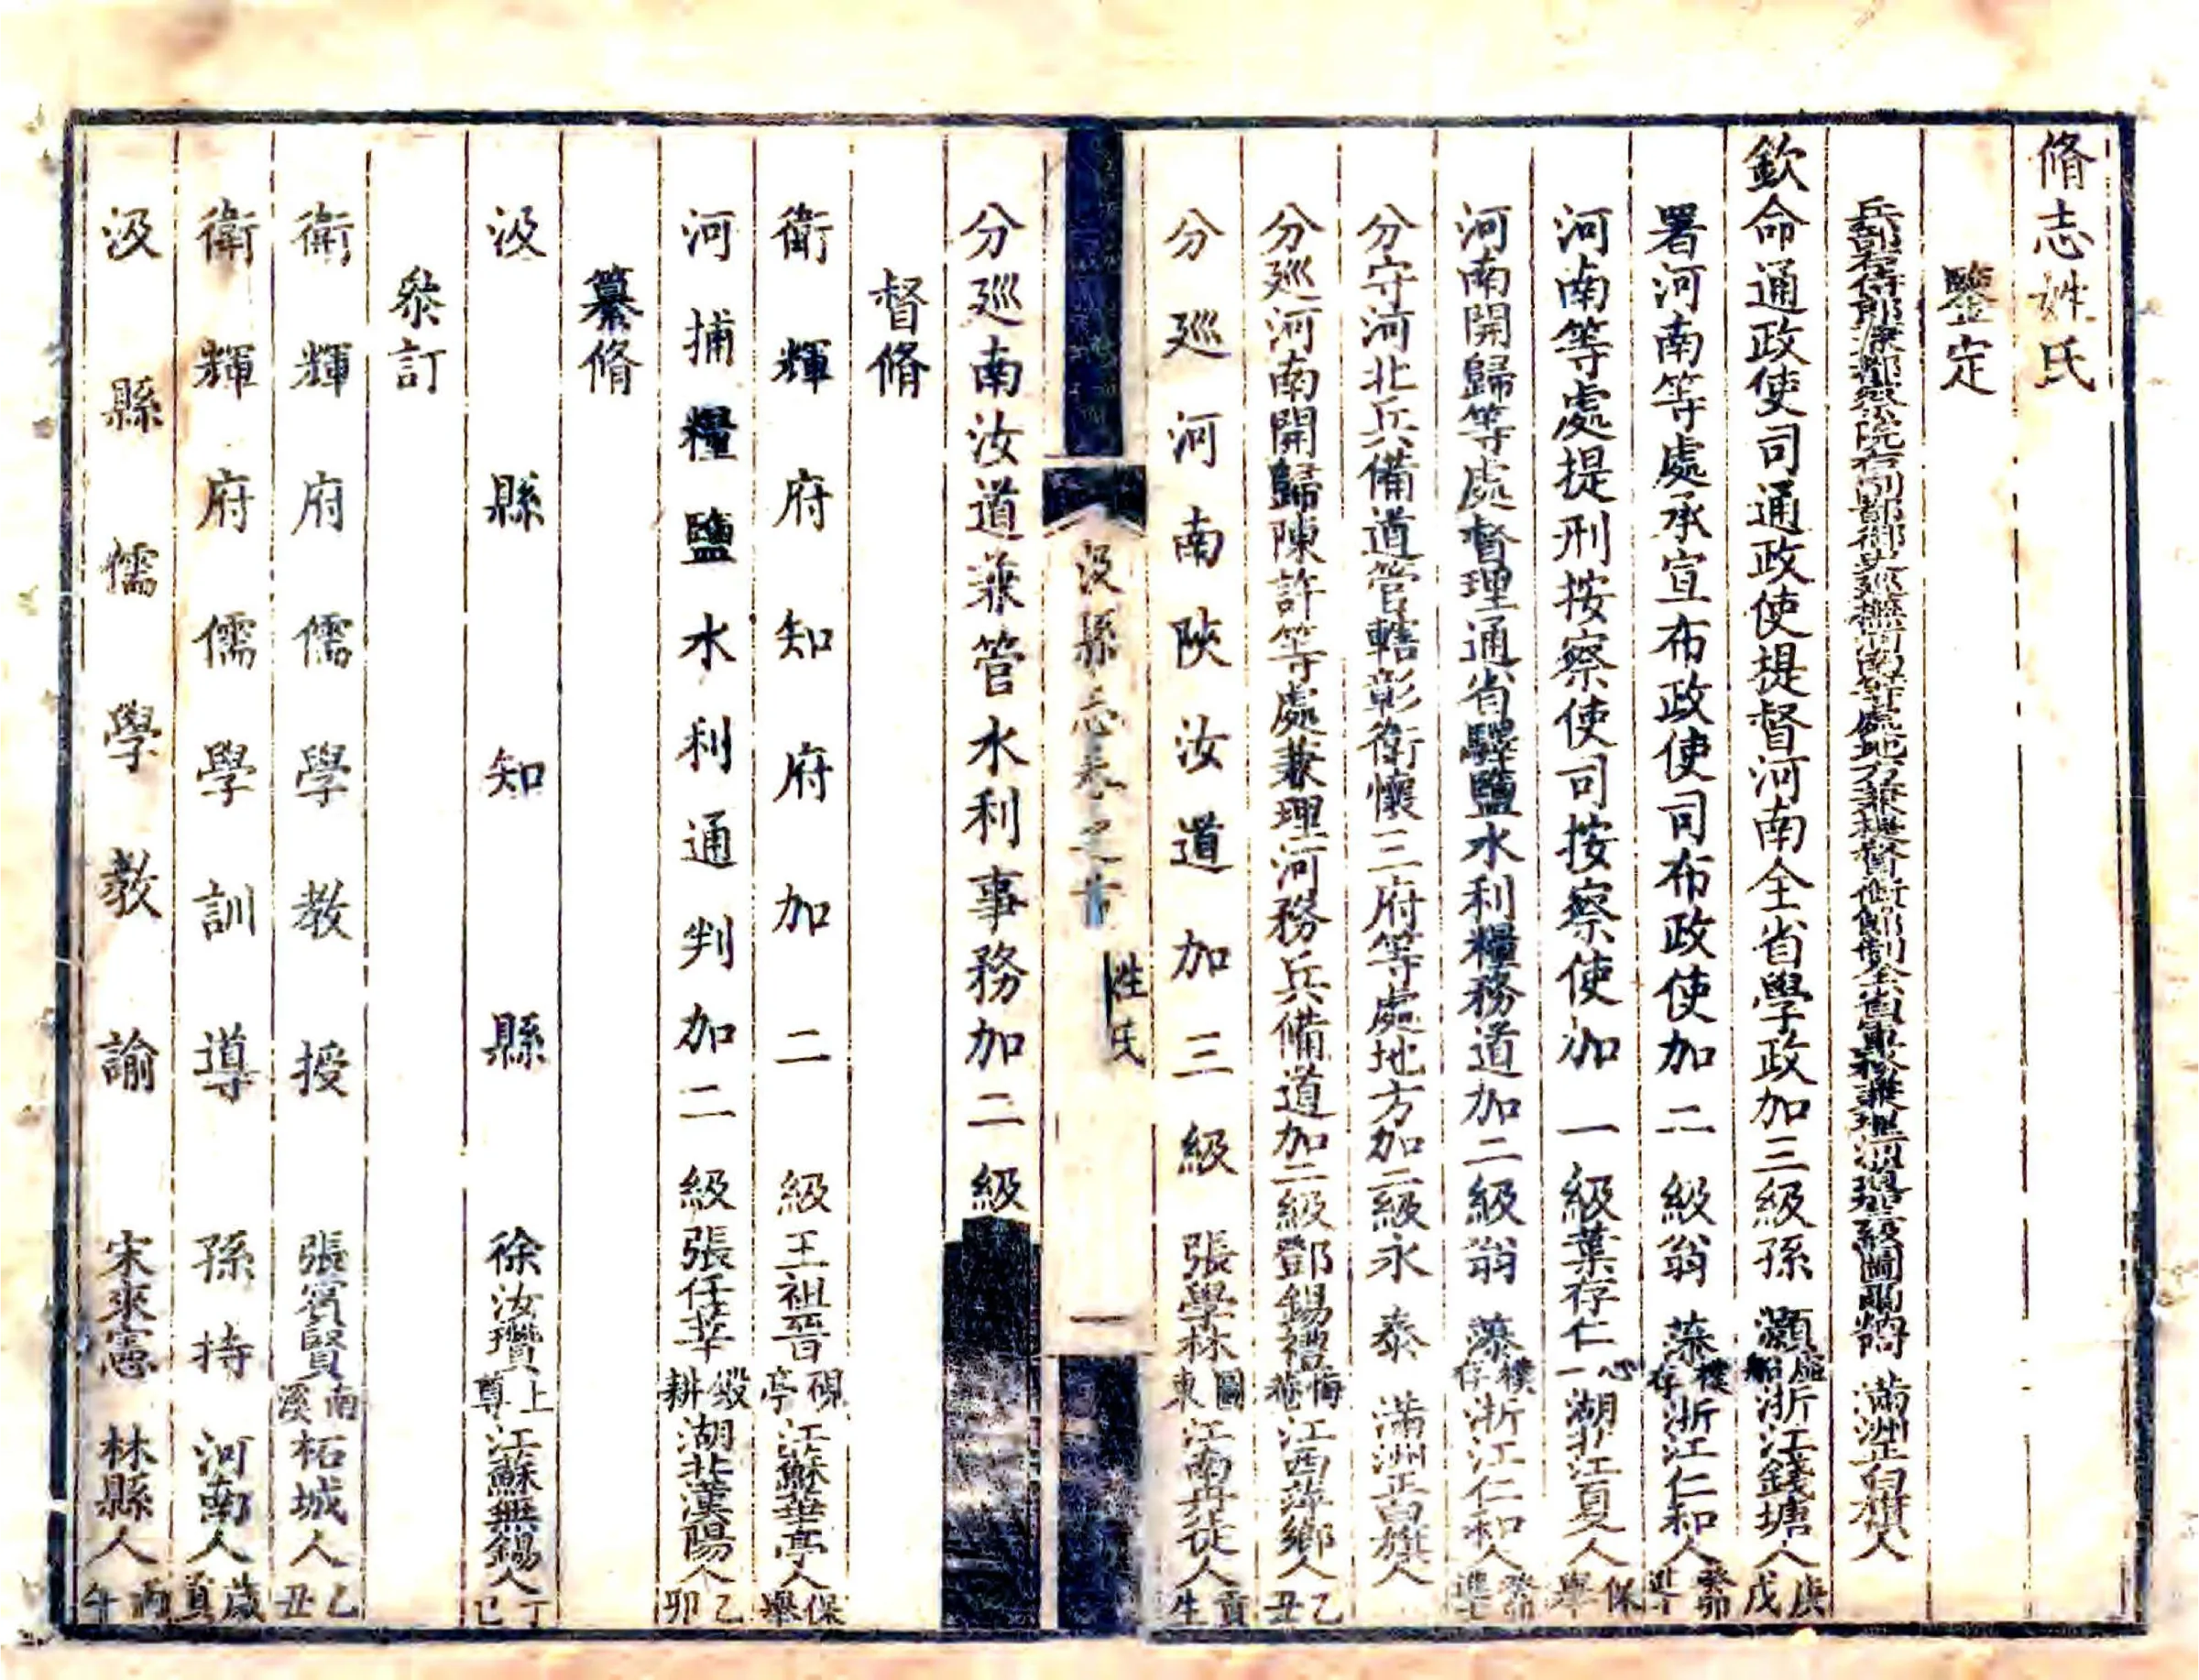 脩志姓氏
鑒定
兵部右侍郎兼都察院右副都御史巡撫河南等處地方兼提督銜節制全省軍務兼理河道三級圖爾炳阿 滿洲正白旗人
欽命通政使司通政使提督河南全省學政加三級孫灝 虛船 浙江錢塘人 庚戌
署河南等處承宣布政使司布政使加二級翁藻 樸存 浙江仁和人 癸卯進士
河南等處提刑按察使司按察使加一級葉存仁 心一 湖北江夏人 保舉
河南開歸等處督理通省驛鹽水利糧務道加二級翁藻 樸存 浙江仁和人 癸卯進士
分守河北兵備道管轄彰衛懷三府等處地方加二級永泰 滿洲正白旗人
分廵河南開歸陳許等處兼理河務兵備道加二級鄧錫禮 梅巷 江西萍鄉人 乙丑
分廵河南陝汝道加三級 張學林 圖東 江南丹徒人 貢生
汲縣志卷之首 姓氏 一
分廵南汝道兼管水利事務加二級
督脩
衛輝府知府加二級 王祖晉 硯亭 江蘇華亭人 保舉
河捕糧鹽水利通判加二級 張任莘 毅耕 湖北漢陽人 乙卯
纂脩
汲縣知縣 徐汝瓚 上尊 江蘇無錫人 丁巳
叅訂
衛輝府儒學教授 張賓賢 南溪 柘城人 乙丑
衛輝府儒學訓導 孫持 河南人 歲貢
汲縣儒學教諭 宋來憲 林縣人 丙午